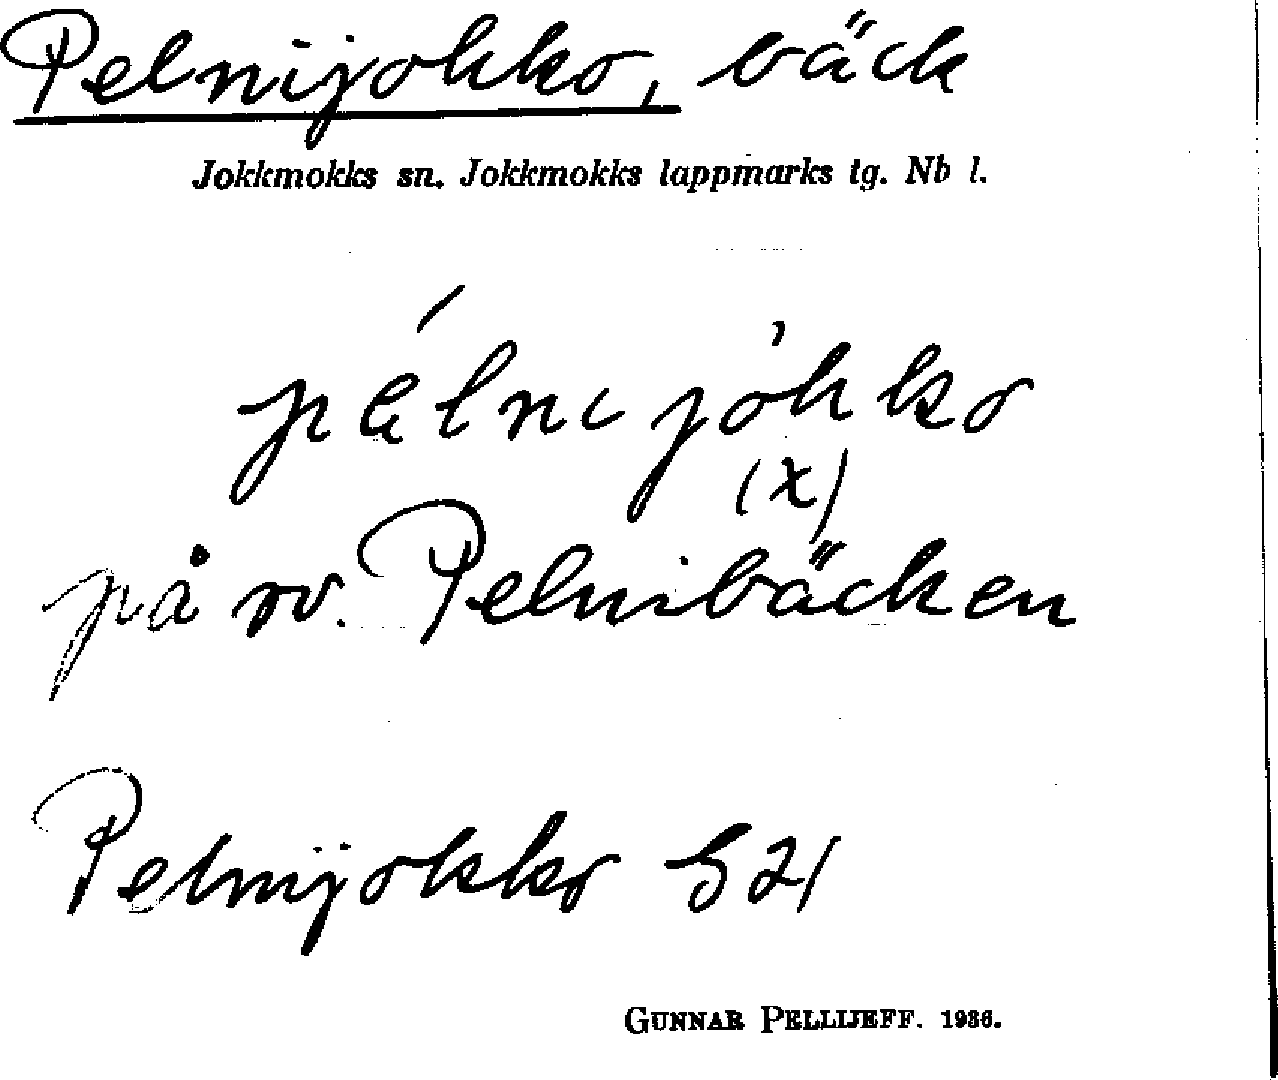 Pelnijokko, bäck
Jokkmokks sn. Jokkmokks lappmarks tg. Nb l.
pélnijòkko
(x)
på sv. Pelnibäcken
Pelnijokko S 21
GUNNAR PELLIJEFF. 1936.